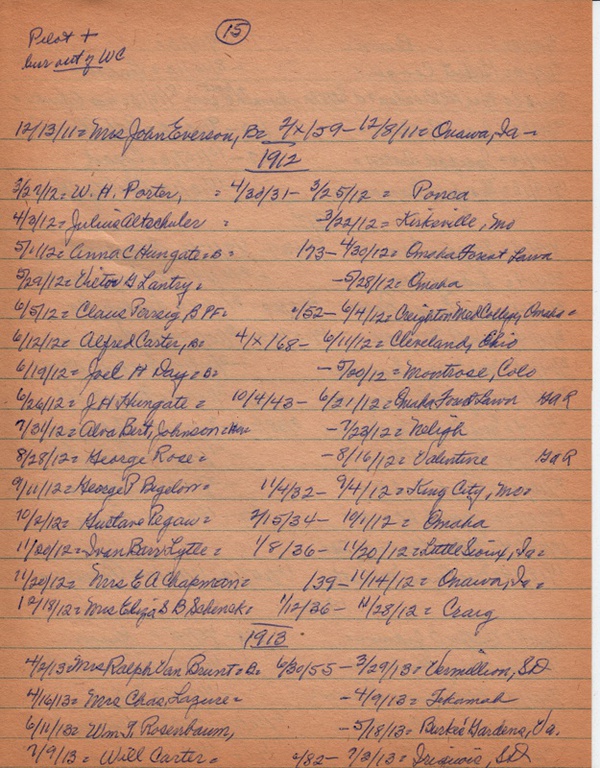 Pilot +
bur out of WC
15
12/13/11 = Mrs John Everson, B= 2/x/59 - 12/8/11 = Onawa, Ia -
1912
3/27/12 = W. H. Porter, = 4/30/31 - 3/25/12 = Ponca
4/3/12 = Julius Altschuler = - 3/22/12 = Kirksville, Mo
5/1/12 = Anna C Hungate = B = 1/73 - 4/30/12 = Omaha Forest Lawn
5/29/12 = Victor G Lantry = - 5/28/12 = Omaha
6/5/12 = Claus Persig B PF = /52 - 6/4/12 = Creighton Med College, Omaha =
6/12/12 = Alfred Carter, B= 4/x/68 - 6/11/12 = Cleveland, Ohio
6/19/12 = Joel H Day = B = - 5/00/12 = Montrose, Colo
6/26/12 = J. H. Hungate = 10/4/43 - 6/21/12 = Omaha Forest Lawn GAR
7/31/12 = Alva Bert, Johnson = - 7/23/12 = Neligh
8/28/12 = George Rose = - 8/16/12 = Valentine GAR
9/11/12 = George P Bigelow = 11/4/32 - 9/4/12 = King City, Mo =
10/2/12 = Gustave Pegau = 2/15/34 - 10/1/12 = Omaha
11/00/12 = Ivan Burr Lytle = 1/8/36 - 11/20/12 = Little Sioux, Ia =
11/20/12 = Mrs E A Chapman = /39 - 11/14/12 = Onawa, Ia =
12/18/12 = Mrs Eliza S B Schenck = 1/12/36 - 11/28/12 = Craig
1913
4/2/13 = Mrs Ralph Van Brunt = B = 6/30/55 - 3/29/13 = Vermillion, SD
4/16/13 = Mrs Chas. Lazure = - 4/9/13 = Tekamah
6/11/13 = Wm. T. Rosenbaum, - 5/18/13 = Burkes Gardens, Va.
7/9/13 = Will Carter = /82 - 7/3/13 = Iriquois, SD